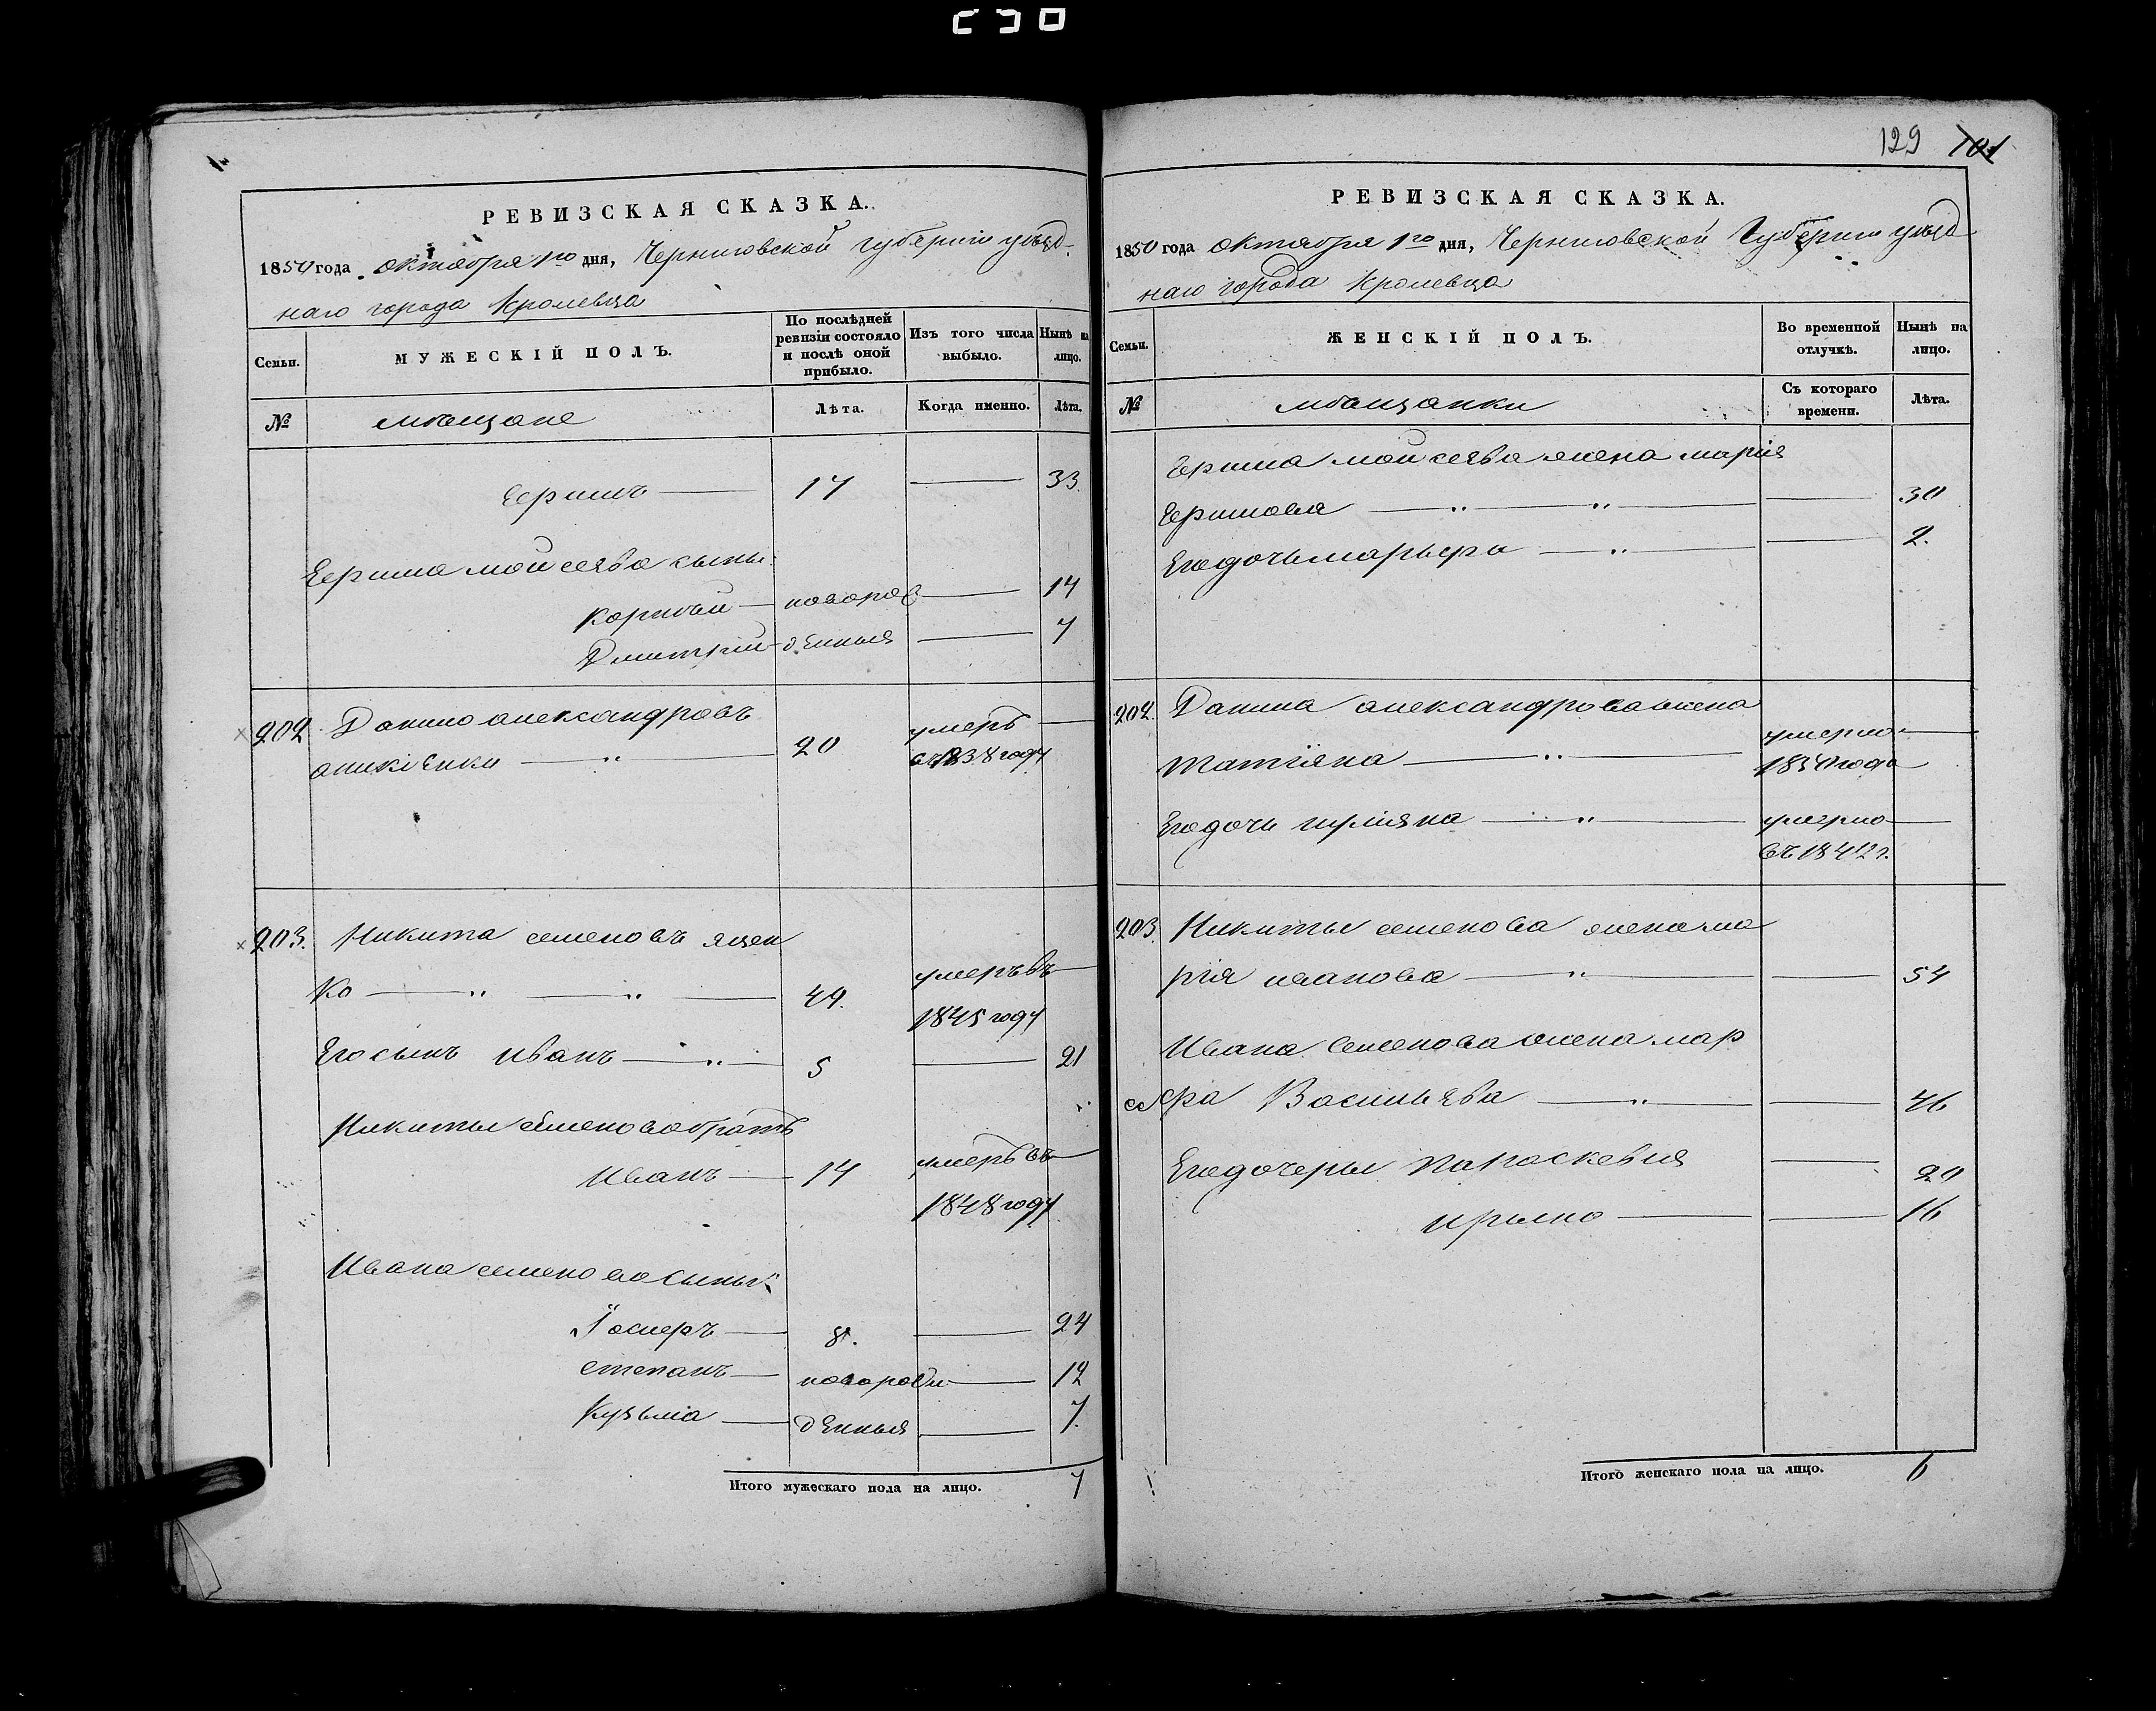 129 101
РЕВИЗСКАЯ СКАЗКА.
1850 года октября 1го дня, Черниговской губернiи уѣзд-
наго города Кролевца
Семьи. МУЖЕСКІЙ ПОЛЪ. По послѣдней ревизіи состояло и послѣ оной прибыло. Изъ того числа выбыло. Нынѣ на лицо.
№ мѣщане Лѣта. Когда именно. Лѣта.
17 33.
моисеява сыны
Корнѣй новорож 14
Дмитрiй денныя 7
202 Данило александровъ умеръ
20 въ 1838 году
203. Никита семеновъ яцен
ко 49. умеръ въ
1845 году
Его сынъ иванъ 5 21
Никиты семенова братъ
Иванъ 14 умеръ въ
1848 году
Ивана семенова сыны
8. 24
степанъ новорож 12
Кузьма денныя 7.
Итого мужескаго пола на лицо. 7
РЕВИЗСКАЯ СКАЗКА.
1850 года октября 1го дня, Черниговской Губернiи уѣзд
наго города Кролевца
Семьи. ЖЕНСКІЙ ПОЛЪ. Во временной отлучкѣ. Нынѣ на лицо.
№ мѣщанки Съ котораго времени. Лѣта.
моисеява жена марiя
30
Его дочь 2.
202. Данила александрова жена
татiяна умерла
1850 года
Его дочь умерла
въ 1842 г.
203. Никиты семенова жена ма
рiя иванова 54
Ивана Семенова жена мар
Васильява 46
Его дочеры Параскевия 20
ирына 16
Итого женскаго пола на лицо. 6